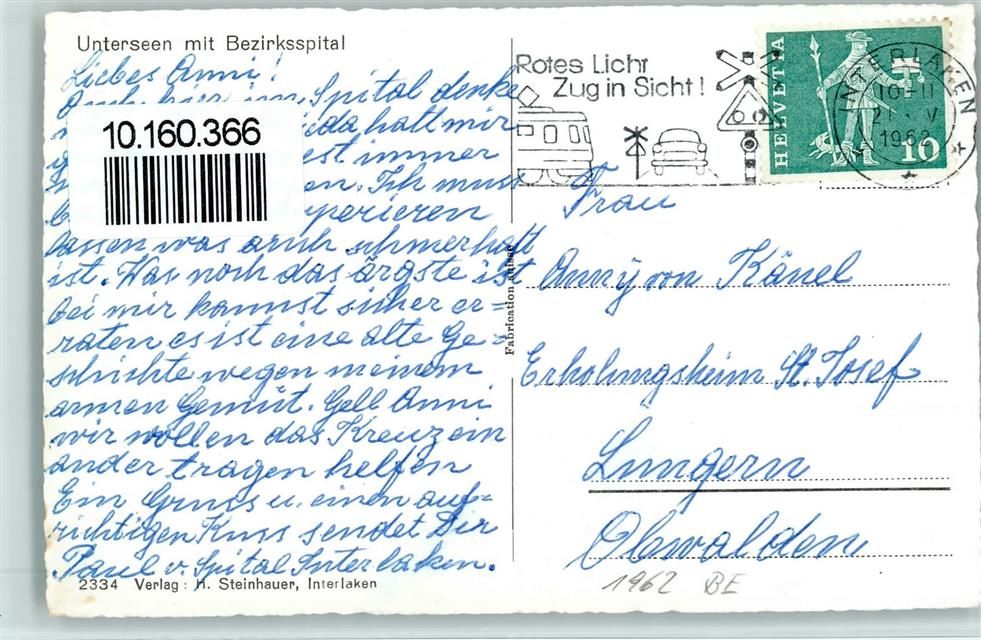 Unterseen mit Bezirksspital
Liebes Anni!
Auch hier im Spital denke
da, halt mir
est immer
en. Ich muss
perieren
lassen was auch schmerhaft
ist. Was noch das ärgste ist
bei mir kannst sicher er=
raten es ist eine alte Ge=
schichte wegen meinem
armen Gemüt. Gell Anni
wir wollen das Kreuz ein
ander tragen helfen
Ein Gruss u. einen auf=
richtigen Kuss sendet Dir
Paul v. Spital Interlaken.
2334 Verlag: H. Steinhauer, Interlaken
10.160.366
Fabrication suisse
Rotes Licht
Zug in Sicht!
HELVETIA
10
INTERLAKEN
10-11
21. V
1962
Frau
Anny von Känel
Erholungsheim St. Josef
Lungern
Obwalden
1962 BE